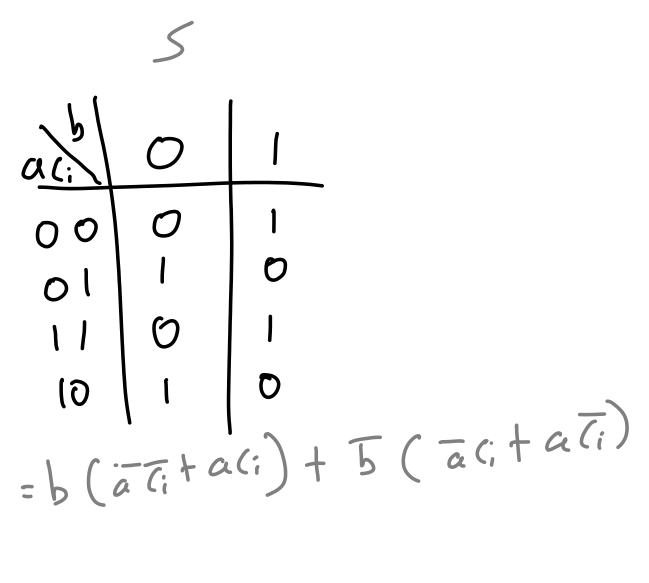 S
b 0 1
aCi
00 0 1
01 1 0
11 0 1
10 1 0
= b ( a̅ C̅i + aCi ) + b̅ ( a̅ Ci + a C̅i )